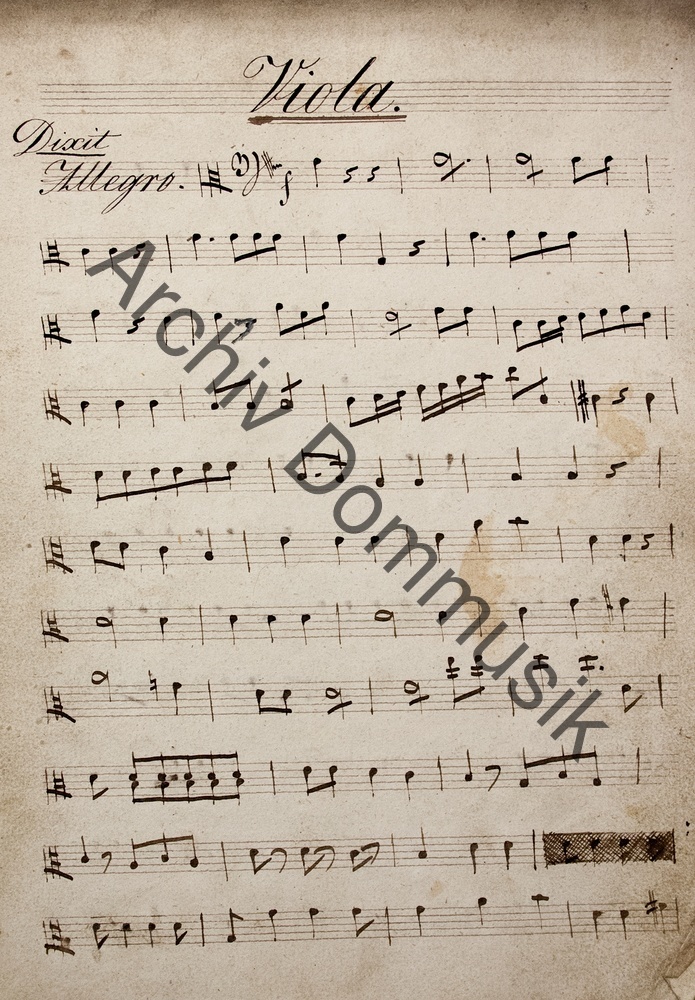 Viola.
Dixit
Allegro.
f
Archiv Dommusik